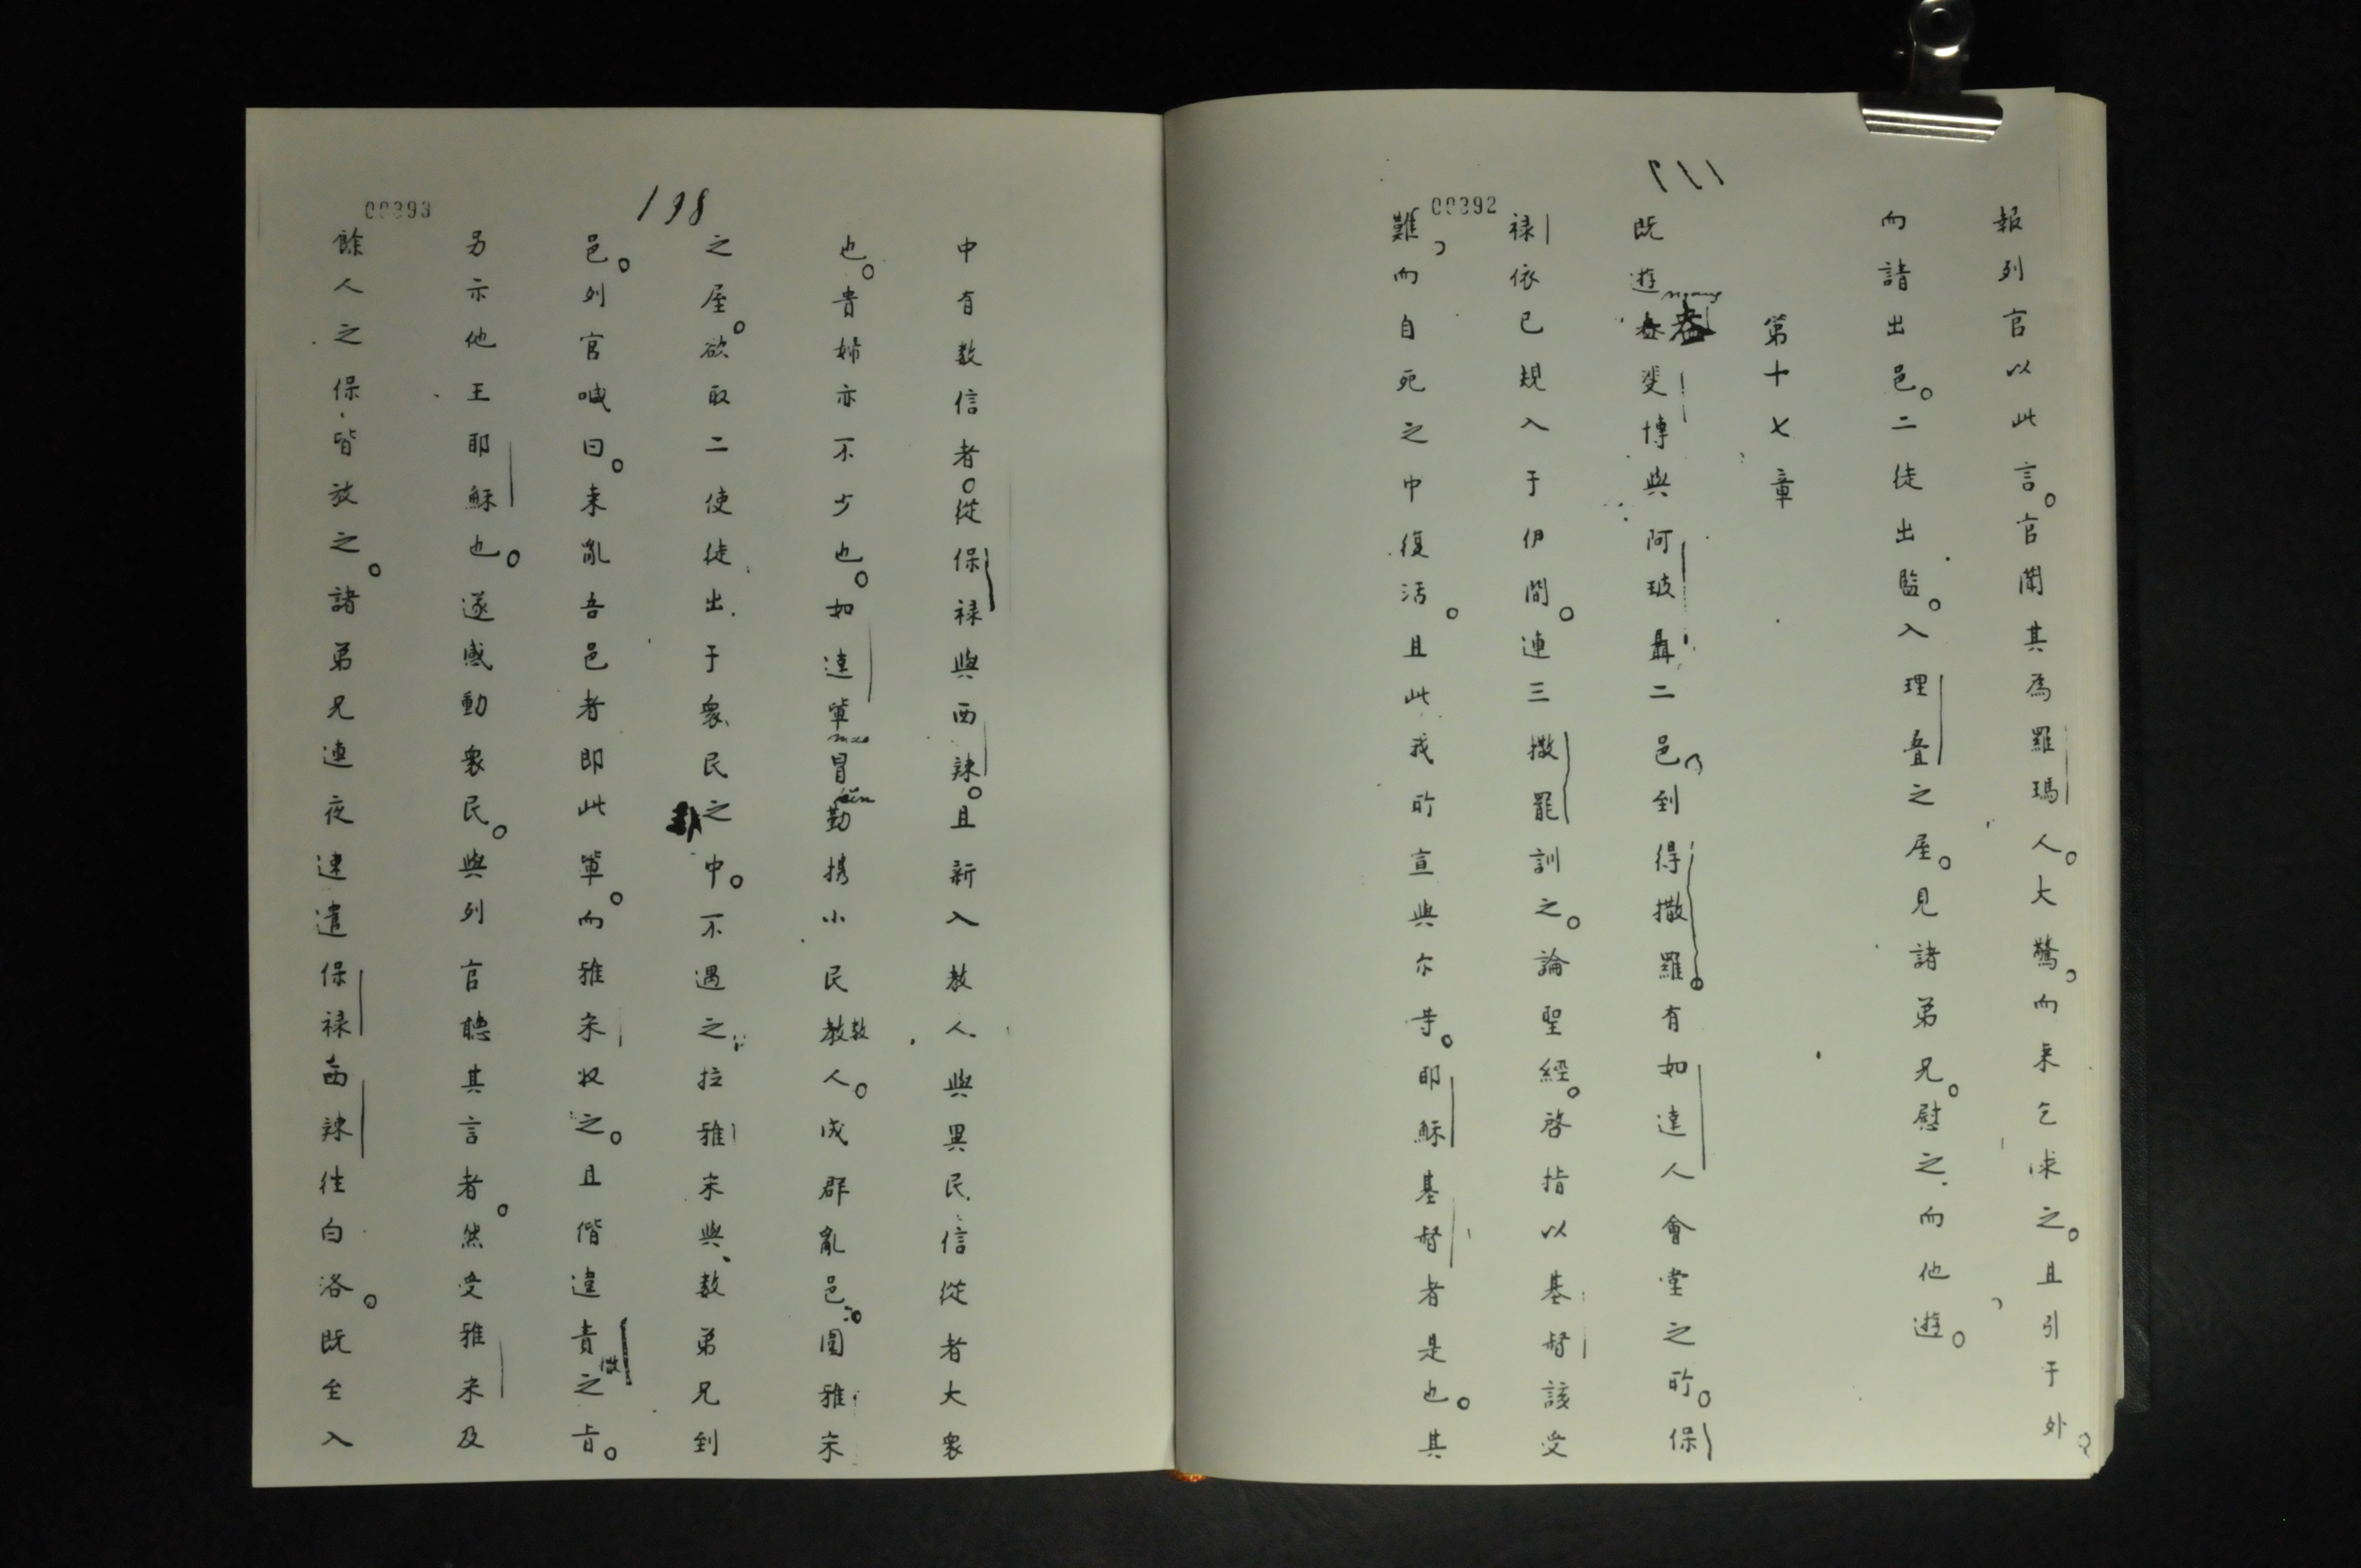 00392
報列官以此言。官聞其為羅瑪人。大驚。而来乞求之。且引于外。
而請出邑。二徒出監。入理叠之屋。見諸弟兄。慰之而他遊。
第十七章
既遊斐博與阿玻聶二邑到得撒羅。有如達人會堂之所。保
禄依已規入于伊間。連三撒罷訓之。論聖經。啓指以基督該受
難而自死之中復活。且此我所宣與尔等。耶穌基督者是也。其
198
00393
中有数信者。從保禄與西辣。且新入教人與異民信從者大衆
也。貴婦亦不少也。如達輩冒勤攜小民教人。成群亂邑。圍雅宋
之屋。欲取二使徒出于衆民之中。不遇之拉雅宋與数弟兄到
邑。列官喊曰。来亂吾邑者即此輩。而雅宋收之。且偕違責之旨。
另示他王耶穌也。遂感動衆民。與列官聽其言者。然受雅宋及
餘人之保皆放之。諸弟兄連夜速遣保禄西辣往白洛。既至入